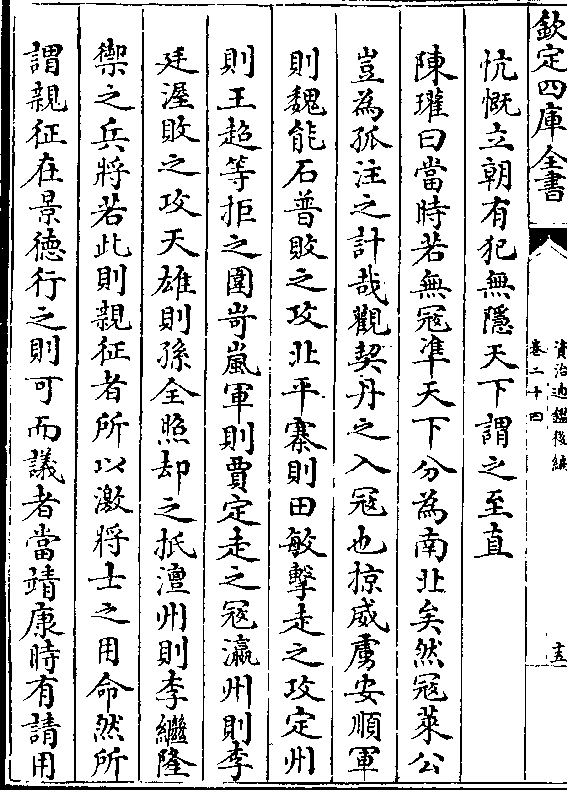 欽定四庫全書
資治通鑑後編
卷二十四
十五
忼慨立朝有犯無隱天下謂之至直
陳瓘曰當時若無冦凖天下分為南北矣然冦萊公
豈為孤注之計哉觀契丹之入冦也掠威虜安順軍
則魏能石普敗之攻北平寨則田敏擊走之攻定州
則王超等拒之圍岢嵐軍則賈定走之冦瀛州則李
廷渥敗之攻天雄則孫全照却之抵澶州則李繼隆
禦之兵將若此則親征者所以激將士之用命然所
謂親征在景德行之則可而議者當靖康時有請用